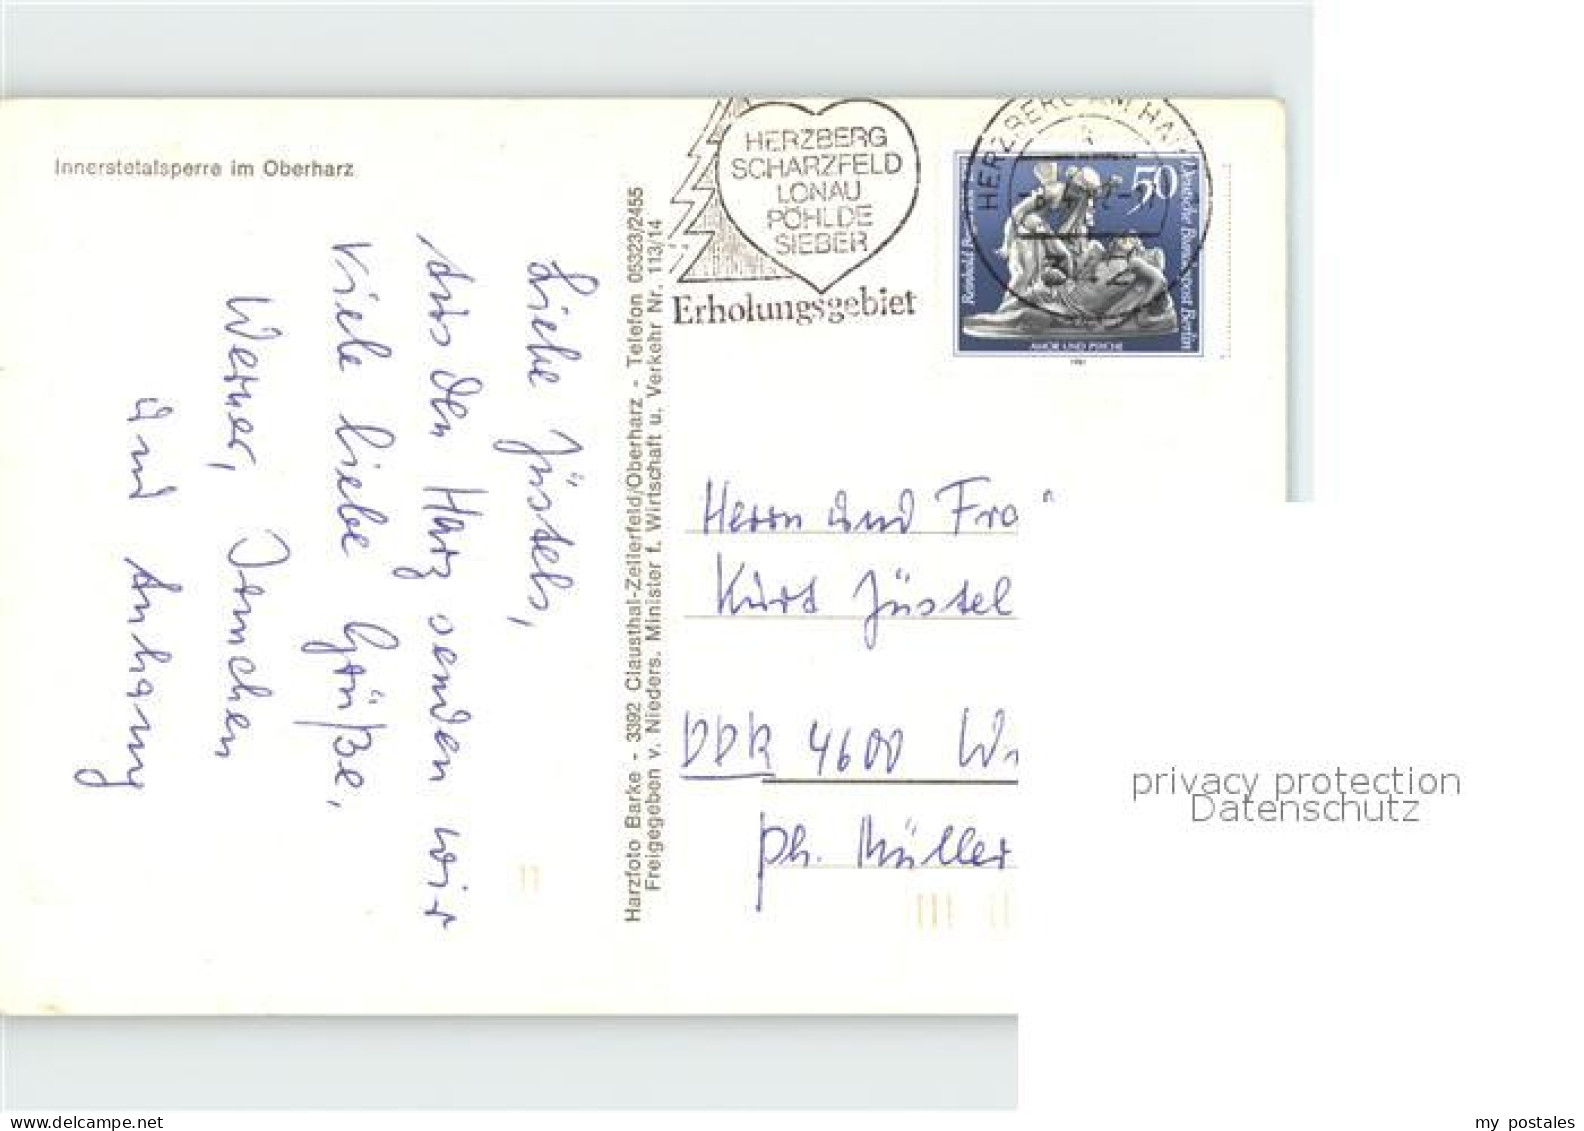 Innerstetalsperre im Oberharz
Liebe Jüstels,
Aus den Harz senden wir
viele liebe Grüße,
Werner, Tannchen
und Anhang
Harzfoto Barke - 3392 Clausthal-Zellerfeld/Oberharz - Telefon 05323/2455
Freigegeben v. Nieders. Minister f. Wirtschaft u. Verkehr Nr. 113/14
HERZBERG
SCHARZFELD
LONAU
PÖHLDE
SIEBER
Erholungsgebiet
HERZBERG AM HARZ
50
Deutsche Bundespost Berlin
Reinhold
AMOR UND PSYCHE
Herrn und Frau
Kurt Jüstel
DDR 4600 Wi
Ph. Müller
privacy protection
Datenschutz
my postales